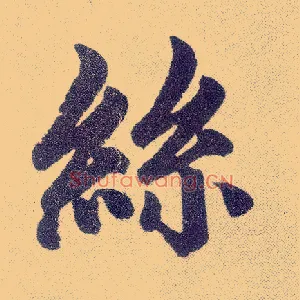 絲
Shufawang.CN